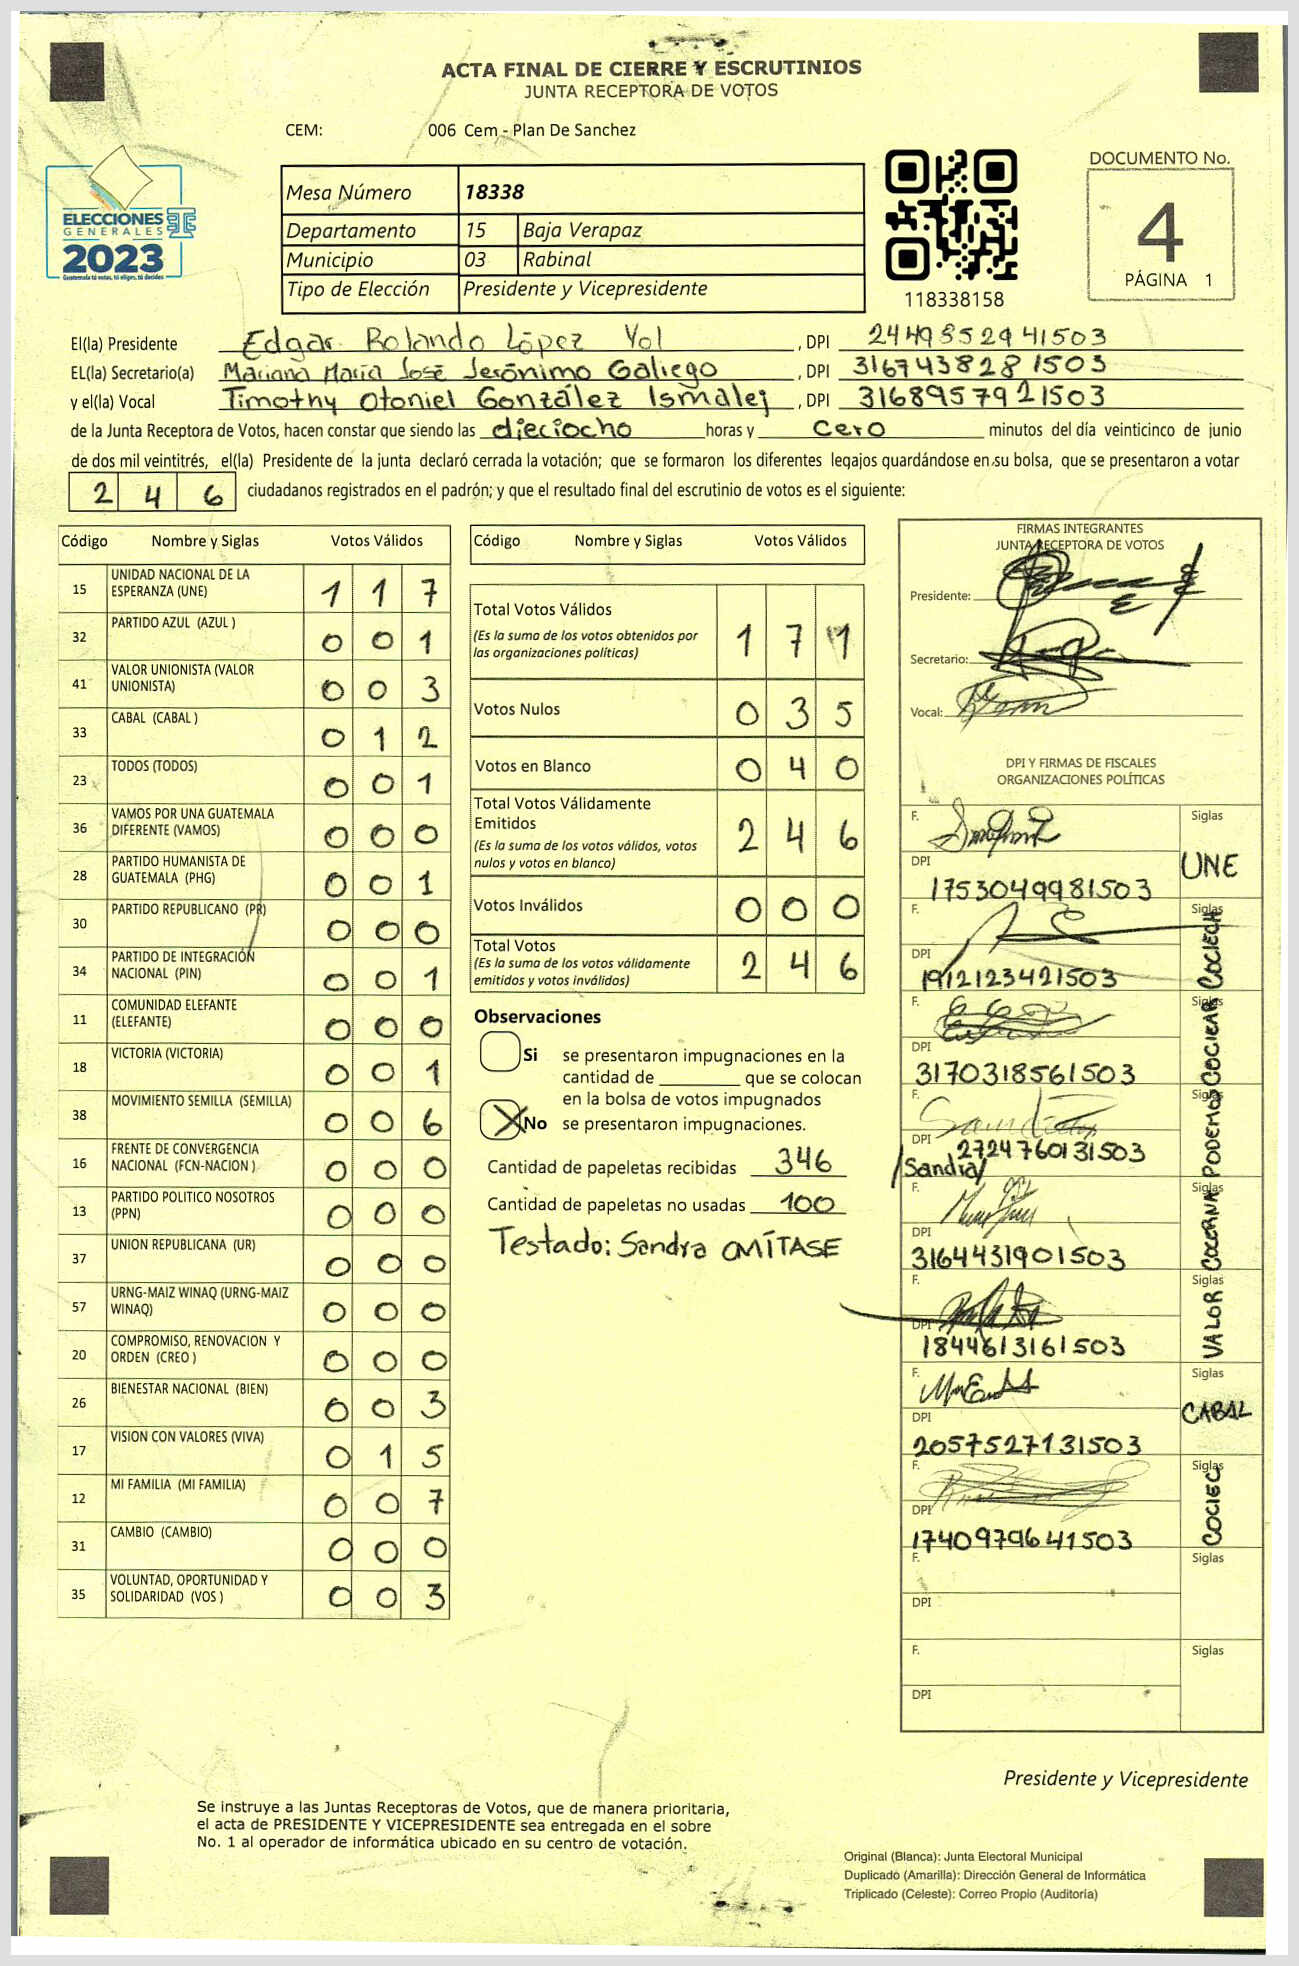 ACTA FINAL DE CIERRE Y ESCRUTINIOS
JUNTA RECEPTORA DE VOTOS
CEM: 006 Cem - Plan De Sanchez
ELECCIONES
GENERALES
2023
Guatemala tú votas, tú eliges, tú decides
Mesa Número 18338
Departamento 15 Baja Verapaz
Municipio 03 Rabinal
Tipo de Elección Presidente y Vicepresidente
118338158
DOCUMENTO No.
4
PÁGINA 1
El(la) Presidente Edgar Rolando López Yol, DPI 2449852941503
EL(la) Secretario(a) Mariana María José Jerónimo Galiego, DPI 3167438281503
y el(la) Vocal Timothy Otoniel González Ismalej, DPI 3168957921503
de la Junta Receptora de Votos, hacen constar que siendo las dieciocho horas y cero minutos del día veinticinco de junio
de dos mil veintitrés, el(la) Presidente de la junta declaró cerrada la votación; que se formaron los diferentes legajos guardándose en su bolsa, que se presentaron a votar
2 4 6 ciudadanos registrados en el padrón; y que el resultado final del escrutinio de votos es el siguiente:
Código Nombre y Siglas Votos Válidos
15 UNIDAD NACIONAL DE LA ESPERANZA (UNE) 1 1 7
32 PARTIDO AZUL (AZUL ) 0 0 1
41 VALOR UNIONISTA (VALOR UNIONISTA) 0 0 3
33 CABAL (CABAL ) 0 1 2
23 TODOS (TODOS) 0 0 1
36 VAMOS POR UNA GUATEMALA DIFERENTE (VAMOS) 0 0 0
28 PARTIDO HUMANISTA DE GUATEMALA (PHG) 0 0 1
30 PARTIDO REPUBLICANO (PR) 0 0 0
34 PARTIDO DE INTEGRACIÓN NACIONAL (PIN) 0 0 1
11 COMUNIDAD ELEFANTE (ELEFANTE) 0 0 0
18 VICTORIA (VICTORIA) 0 0 1
38 MOVIMIENTO SEMILLA (SEMILLA) 0 0 6
16 FRENTE DE CONVERGENCIA NACIONAL (FCN-NACION ) 0 0 0
13 PARTIDO POLITICO NOSOTROS (PPN) 0 0 0
37 UNION REPUBLICANA (UR) 0 0 0
57 URNG-MAIZ WINAQ (URNG-MAIZ WINAQ) 0 0 0
20 COMPROMISO, RENOVACION Y ORDEN (CREO ) 0 0 0
26 BIENESTAR NACIONAL (BIEN) 0 0 3
17 VISION CON VALORES (VIVA) 0 1 5
12 MI FAMILIA (MI FAMILIA) 0 0 7
31 CAMBIO (CAMBIO) 0 0 0
35 VOLUNTAD, OPORTUNIDAD Y SOLIDARIDAD (VOS ) 0 0 3
Código Nombre y Siglas Votos Válidos
Total Votos Válidos 1 7 1
(Es la suma de los votos obtenidos por
las organizaciones políticas)
Votos Nulos 0 3 5
Votos en Blanco 0 4 0
Total Votos Válidamente
Emitidos 2 4 6
(Es la suma de los votos válidos, votos
nulos y votos en blanco)
Votos Inválidos 0 0 0
Total Votos 2 4 6
(Es la suma de los votos válidamente
emitidos y votos inválidos)
Observaciones
Si se presentaron impugnaciones en la
cantidad de ________ que se colocan
en la bolsa de votos impugnados
X No se presentaron impugnaciones.
Cantidad de papeletas recibidas 346
Cantidad de papeletas no usadas 100
Testado: Sandra OMÍTASE
FIRMAS INTEGRANTES
JUNTA RECEPTORA DE VOTOS
Presidente:
Secretario:
Vocal:
DPI Y FIRMAS DE FISCALES
ORGANIZACIONES POLÍTICAS
F. Siglas
DPI 1753049981503 UNE
F. Siglas
DPI 1912123421503 COCIECH
F. Siglas
DPI 3170318561503 COCIEAR
F. Siglas
DPI 2724760131503 PODEMOS
/Sandra/
F. Siglas
DPI 3164431901503
F. Siglas
DPI 1844613161503 VALOR
F. Siglas
DPI 2057527131503 CABAL
F. Siglas
DPI 1740979641503 COCIEC
F. Siglas
DPI
F. Siglas
DPI
Presidente y Vicepresidente
Se instruye a las Juntas Receptoras de Votos, que de manera prioritaria,
el acta de PRESIDENTE Y VICEPRESIDENTE sea entregada en el sobre
No. 1 al operador de informática ubicado en su centro de votación.
Original (Blanca): Junta Electoral Municipal
Duplicado (Amarilla): Dirección General de Informática
Triplicado (Celeste): Correo Propio (Auditoría)